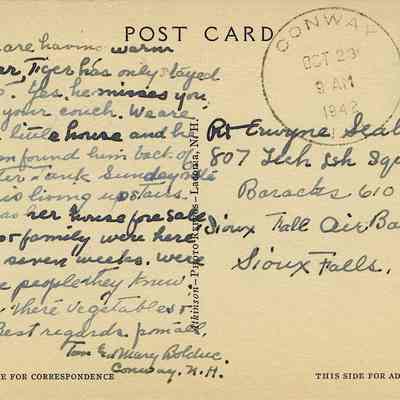 POST CARD
CONWAY
OCT 23
9 AM
1942
are having warm
Tiger has only stayed
Yes. he misses you
your couch. We are
little house and he
found him back of
tank Sunday
is living upstairs.
her house for sale
family were here
seven weeks. were
people they knew.
there vegetables
Best regards. from all.
Tom & Mary Bolduc.
Conway. N.H.
Atkinson—Photo —Laconia, N.H.
Pvt Erwyne Seal
807 Tech Ssh Sqd
Baracks 610
Sioux Fall Air Ba
Sioux Falls.
E FOR CORRESPONDENCE
THIS SIDE FOR AD